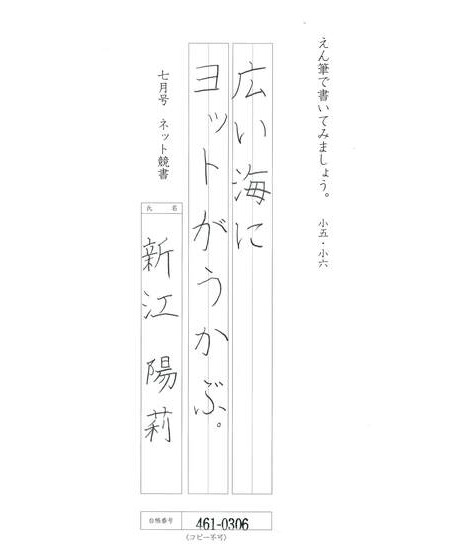 えん筆で書いてみましょう。 小五・小六
広い海に
ヨットがうかぶ。
七月号 ネット競書
氏名
新江陽莉
台帳番号 461-0306
(コピー不可)